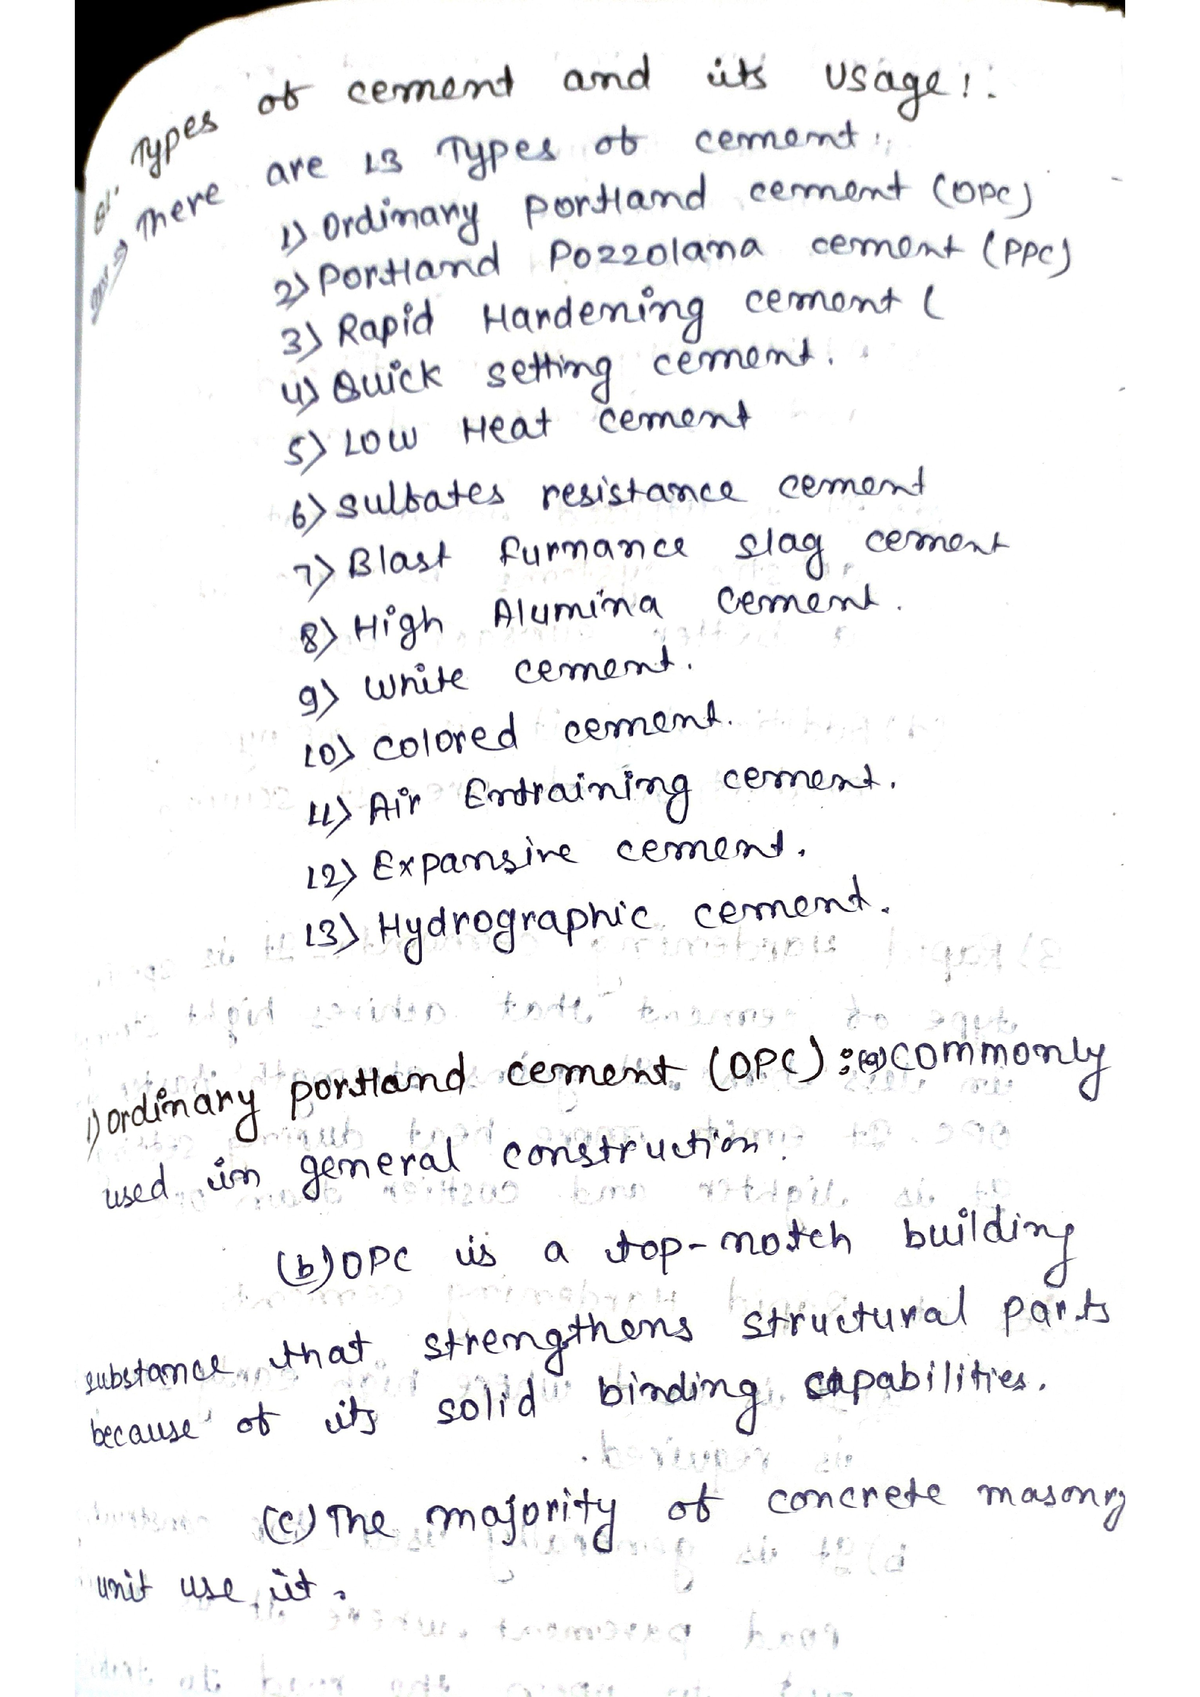 Types of cement and its usage!:
There are 13 Types of cement:
1) Ordinary portland cement (OPC)
2) Portland Pozzolana cement (PPC)
3) Rapid Hardening cement (
4) Quick setting cement.
5) Low Heat cement
6) Sulfates resistance cement
7) Blast furnance slag cement
8) High Alumina cement.
9) White cement.
10) Colored cement.
11) Air Entraining cement.
12) Expansive cement.
13) Hydrographic cement.
1) Ordinary portland cement (OPC): (a) commonly
used in general construction.
(b) OPC is a top-notch building
substance that strengthens structural parts
because of its solid binding capabilities.
(c) The majority of concrete masonry
unit use it.